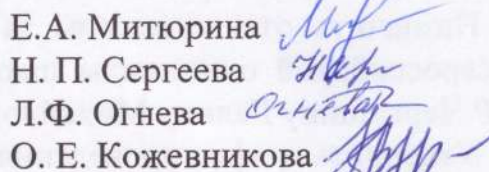 Е.А. Митюрина
Н. П. Сергеева
Л.Ф. Огнева Огнева
О. Е. Кожевникова